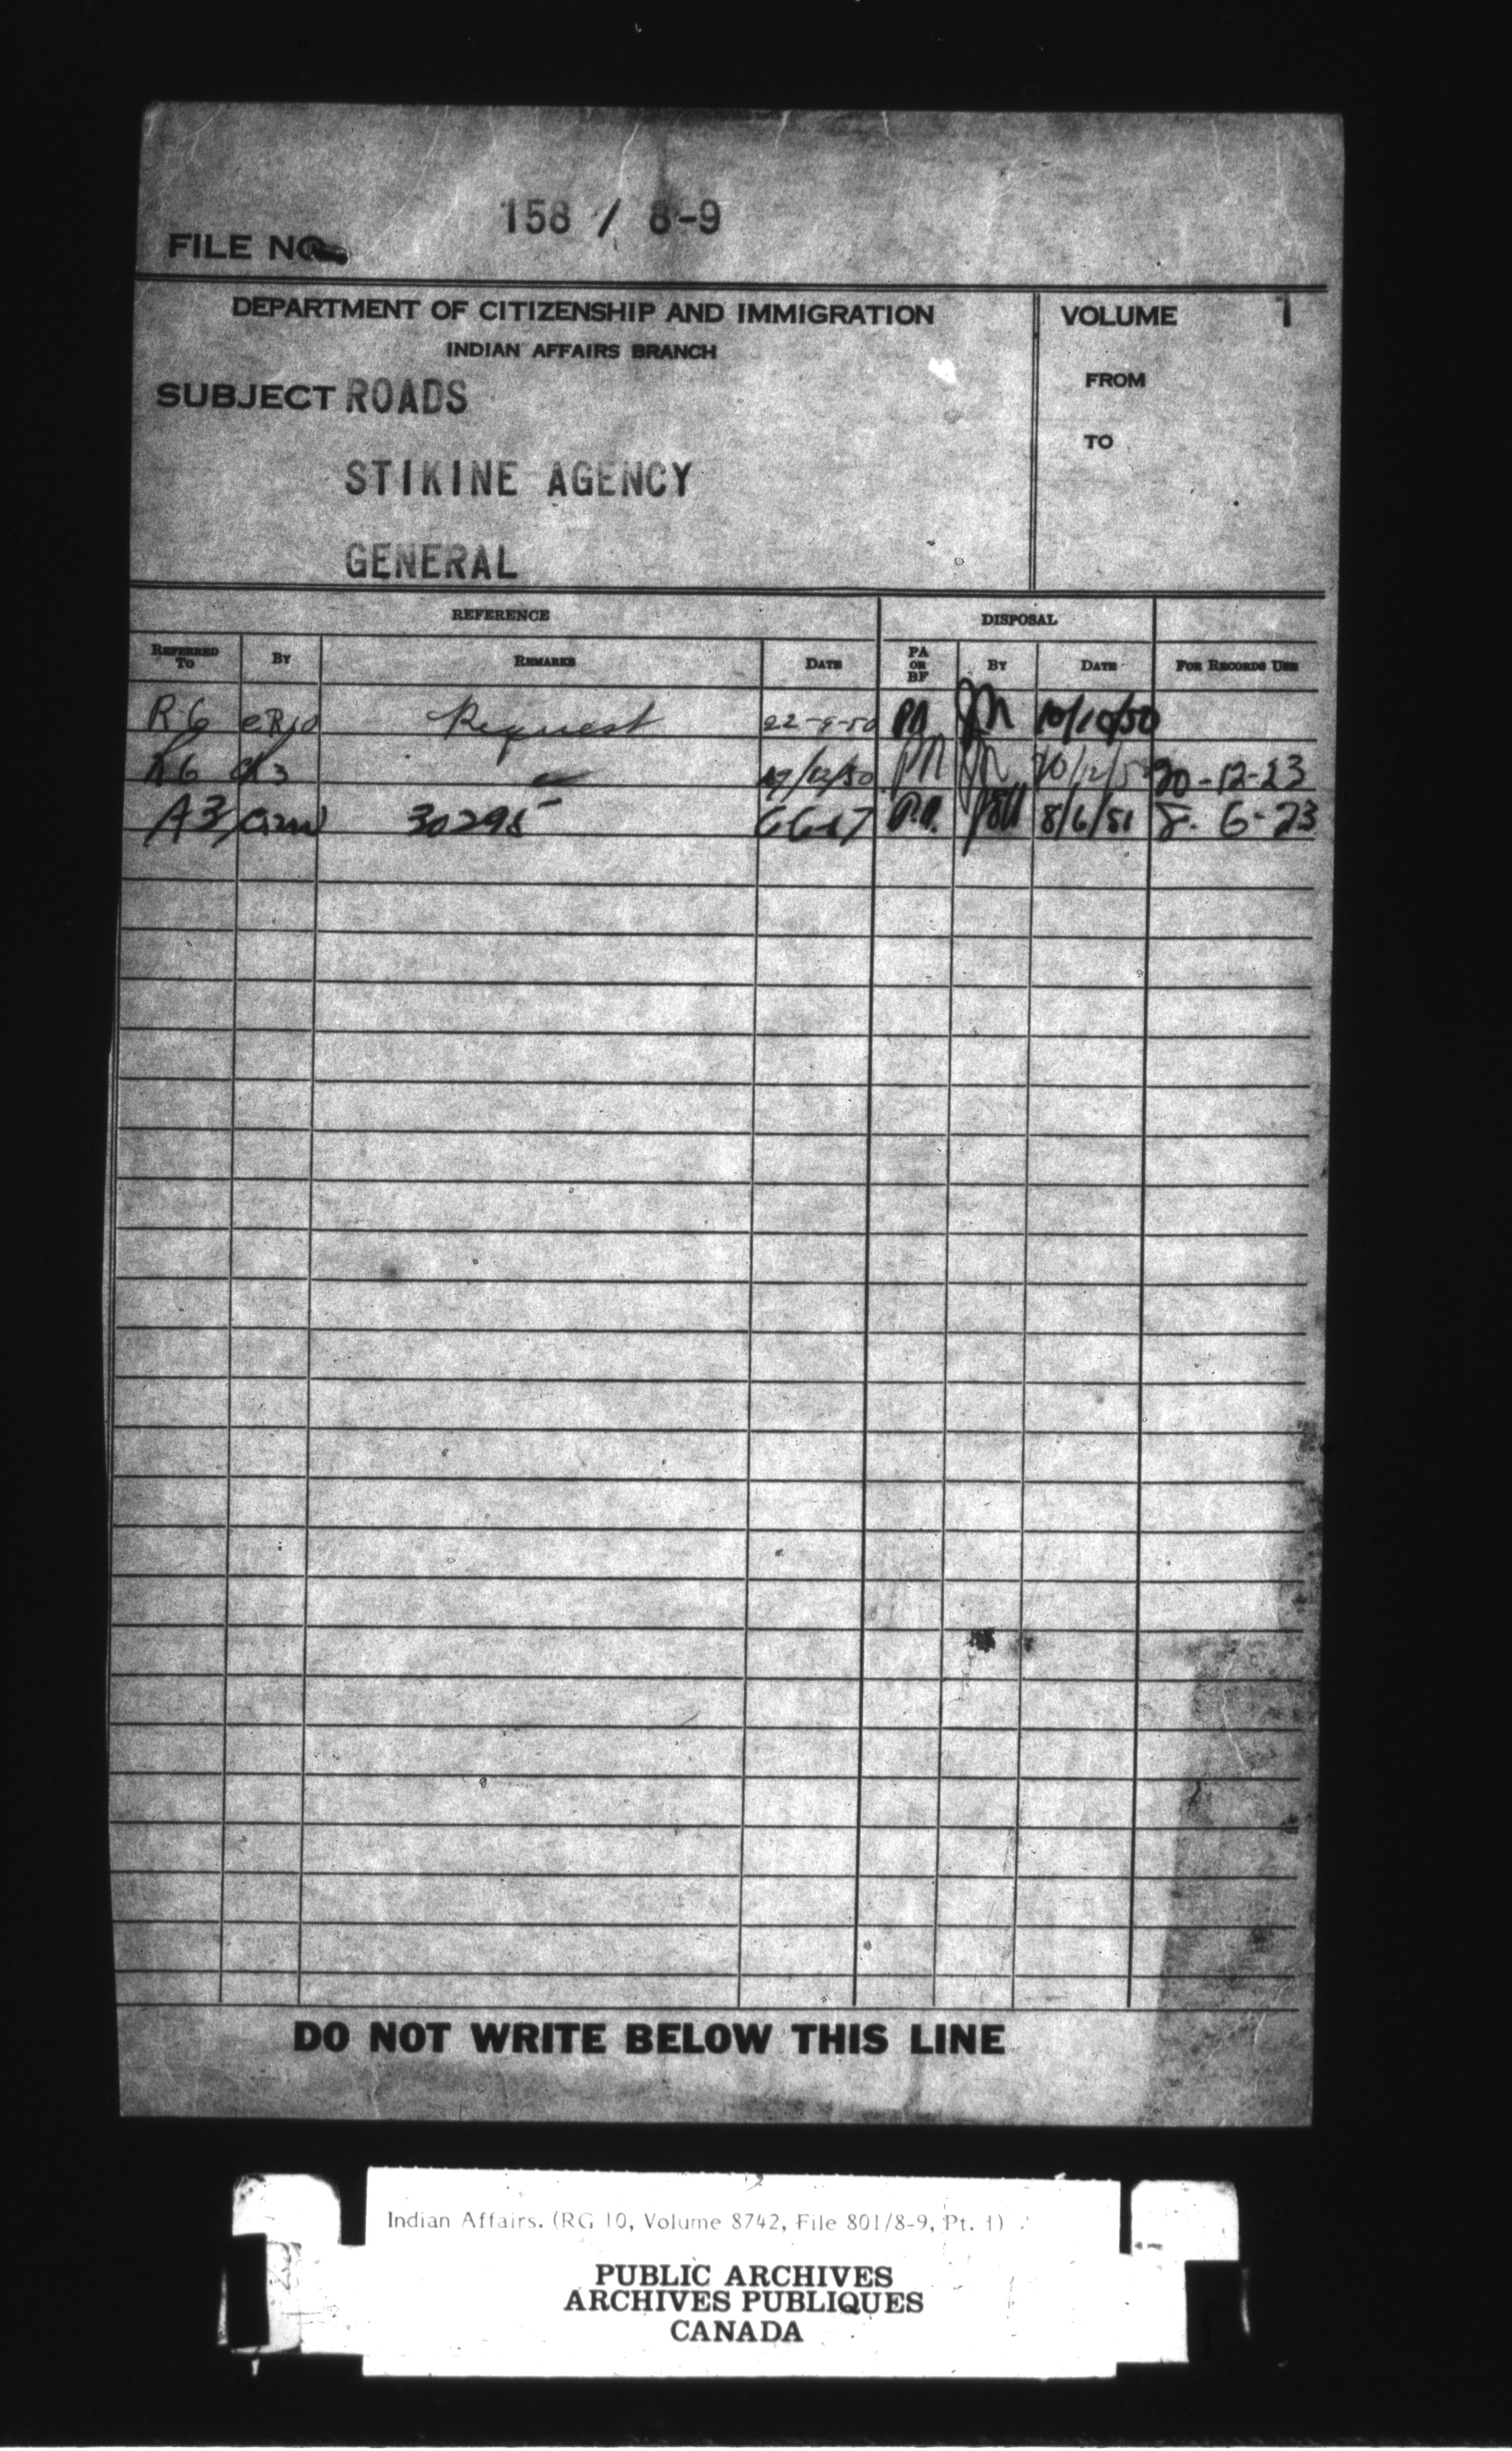 158 / 8-9
FILE NO.
DEPARTMENT OF CITIZENSHIP AND IMMIGRATION
INDIAN AFFAIRS BRANCH
VOLUME 1
FROM
TO
SUBJECT ROADS
STIKINE AGENCY
GENERAL
REFERENCE DISPOSAL
REFERRED TO BY REMARKS DATE PA OR BF BY DATE FOR RECORDS USE
R6 Request 22-9-50 PA 10/10/50
R6 19/12/50 PA 20-12-23
A3 30295 P.A. 8/6/51 8-6-23
DO NOT WRITE BELOW THIS LINE
Indian Affairs. (RG 10, Volume 8742, File 801/8-9, Pt. 1)
PUBLIC ARCHIVES
ARCHIVES PUBLIQUES
CANADA